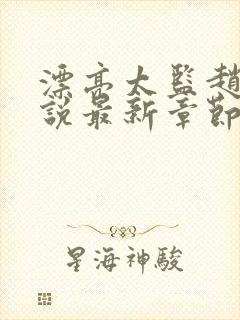 漂亮太監趙
說最新章節
星海神駿